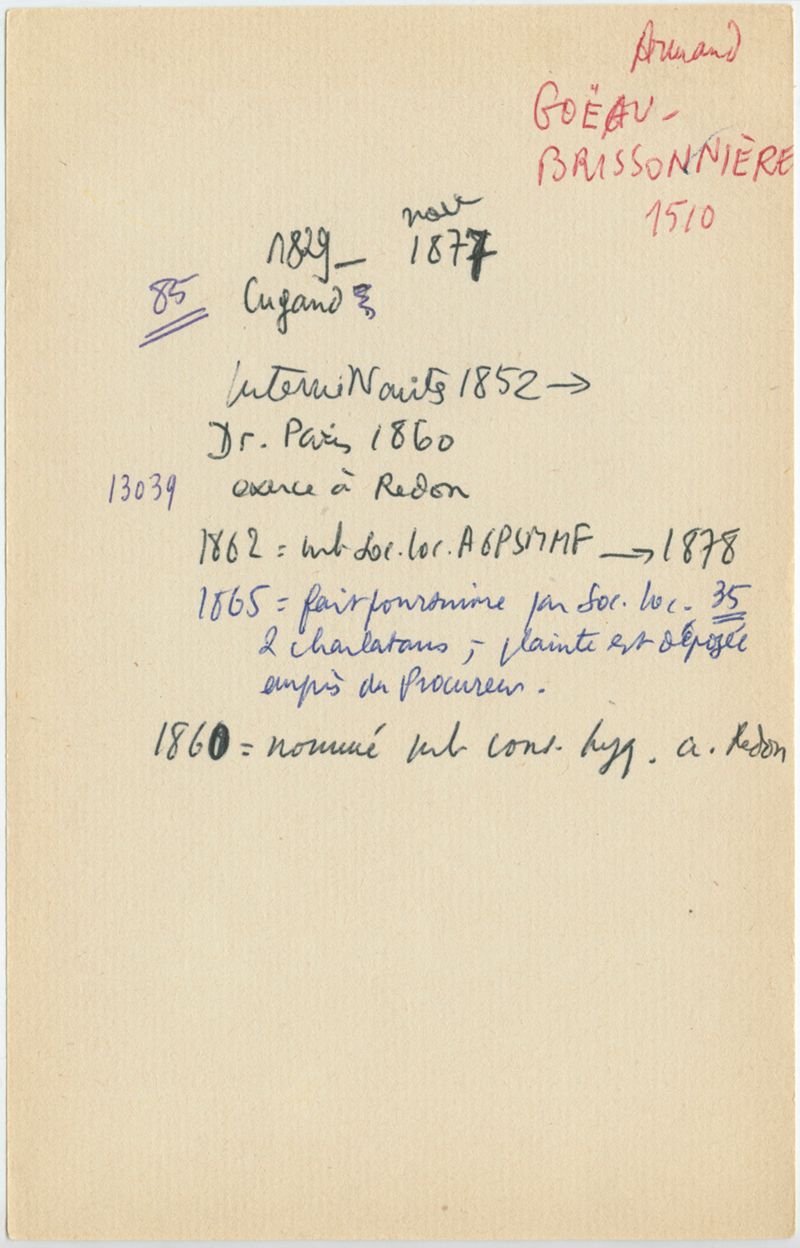 Armand
GOËAU-
BRISSONNIÈRE
1510
nov
1829 - 1877
85 Cugand
Interne Nantes 1852 →
Dr. Paris 1860
13039 exerce à Redon
1862 = mb Soc. loc. AGPSMMF → 1878
1865 = fait poursuivre par Soc. loc. 35
2 charlatans, - plainte est déposée
auprès du Procureur.
1860 = nommé mb cons. hyg. a. Redon